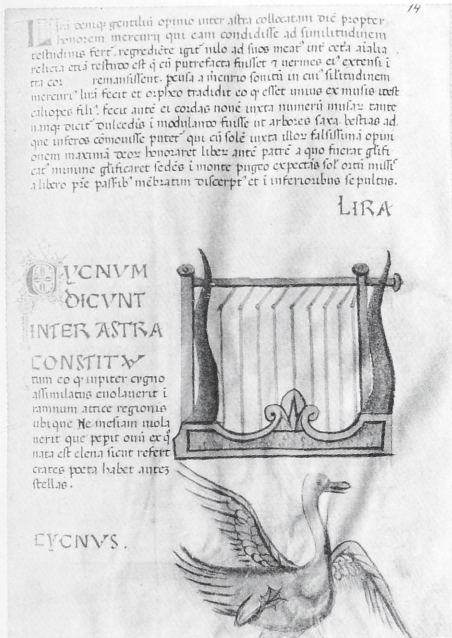 14
Lira deniq; gentiliū opinio inter astra collocatam dic̄ propter
honorem mercurii qui eam condidisse ad similitudinem
testudinis fert᷑. regrediente igit᷑ nilo ad suos meat᷑
relicta etiā testudo est q̄ cū putrefacta fuisset & nervi ei᷑ extensi i
tra cor remansissent. pcusa a mcurio sonitū in cui᷑ similitudinem
mercuri᷑ lirā fecit et orpheo tradidit eo q᷑ esset unius ex musis
caliopes fili᷑. fecit autē ei cordas nonē iuxta numerū musaꝝ tante
nanq; dulcedis i modulando fuisse ut arbores saxa. bestias ad
que inferos cōmouisse putet᷑ qui cū solē iuxta illoꝝ falsissimā opini
onem maximū deoꝝ honoraret liber autē patrē a quo fuerat glifi
cat᷑ minime glificaret sedēs i monte pageo expectās sol᷑ ortū
a libero pre mēbratim discerpt᷑ et i inferioribus sepultus.
LIRA
CYCNVM
DICVNT
INTER ASTRA
CONSTITV
tum eo q᷑ iupiter cygno
assimilatus euolauerit i
ramnum attice regionis
ubique Nemesiam uiola
uerit que pepit ouū ex q̊
nata est elena sicut refert
crates poeta habet autē
stellas.
CYCNVS.